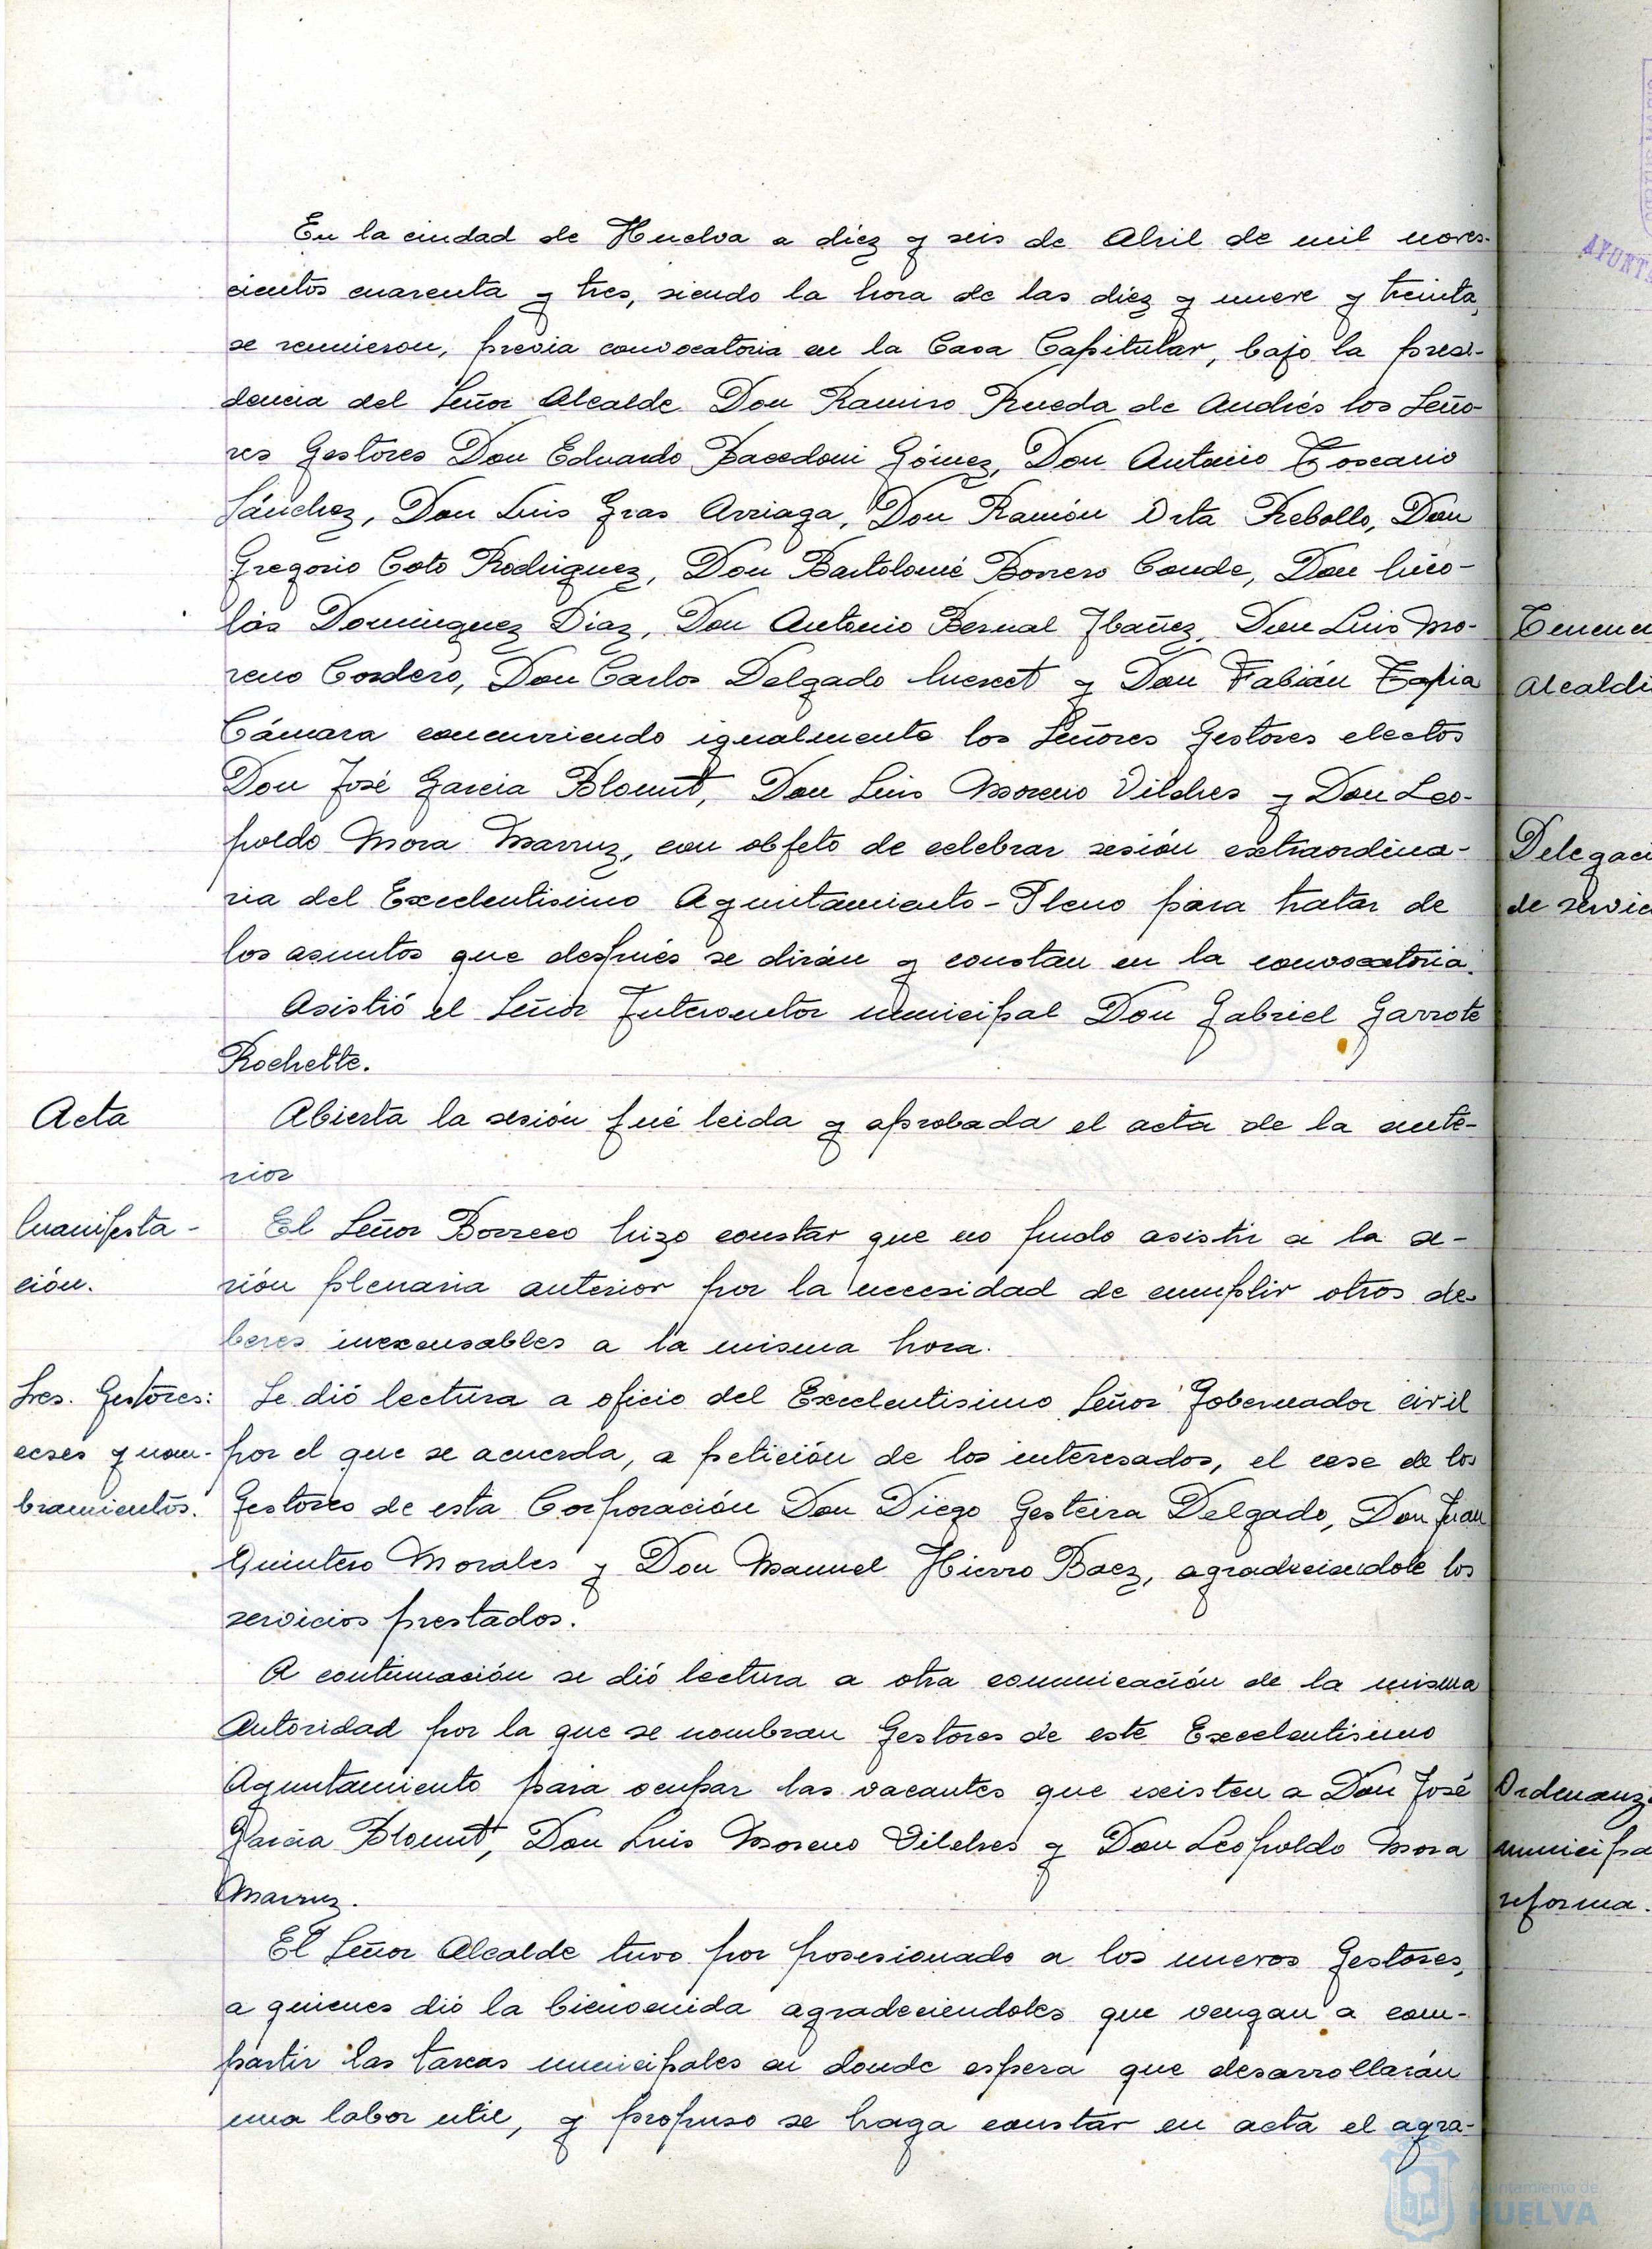 En la ciudad de Huelva a diez y seis de Abril de mil noves-
cientos cuarenta y tres, siendo la hora de las diez y nueve y treinta,
se reunieron, previa convocatoria en la Casa Capitular, bajo la presi-
dencia del Señor Alcalde Don Ramiro Rueda de Andrés los Seño-
res Gestores Don Eduardo Bacedoni Gómez, Don Antonio Toscano
Sánchez, Don Luis Gras Arriaga, Don Ramón Orta Rebollo, Don
Gregorio Coto Rodriguez, Don Bartolomé Borrero Conde, Don Nico-
lás Dominguez Diaz, Don Antonio Bernal Ibañez, Don Luis Mo-
reno Cordero, Don Carlos Delgado y Don Fabián Tapia
Cámara concurriendo igualmente los Señores Gestores electos
Don José Garcia Blount, Don Luis Moreno Vilches y Don Leo-
poldo Mora Marruz, con objeto de celebrar sesión extraordina-
ria del Excelentisimo Ayuntamiento-Pleno para tratar de
los asuntos que después se dirán y constan en la convocatoria.
Asistió el Señor Interventor municipal Don Gabriel Garrote
Rochette.
Acta
Abierta la sesión fué leida y aprobada el acta de la ante-
rior
Manifesta-
ción.
El Señor Borrero hizo constar que no pudo asistir a la se-
sión plenaria anterior por la necesidad de cumplir otros de-
beres inexcusables a la misma hora.
Sres. Gestores:
ceses y nom-
bramientos.
Se dió lectura a oficio del Excelentisimo Señor Gobernador civil
por el que se acuerda, a petición de los interesados, el cese de los
Gestores de esta Corporación Don Diego Gesteira Delgado, Don Juan
Quintero Morales y Don Manuel Hierro Baez, agradeciendole los
servicios prestados.
A continuación se dió lectura a otra comunicación de la misma
Autoridad por la que se nombran Gestores de este Excelentisimo
Ayuntamiento para ocupar las vacantes que existen a Don José
Garcia Blount, Don Luis Moreno Vilches y Don Leopoldo Mora
Marruz.
El Señor Alcalde tuvo por posesionado a los nuevos Gestores,
a quienes dió la bienvenida agradeciendoles que vengan a com-
partir las tareas municipales en donde espera que desarrollarán
una labor util, y propuso se haga constar en acta el agra-
Alcaldi
Delegaci
de servic
Ordenanz
municipa
reforma.
AYUNT
Ayuntamiento de
HUELVA